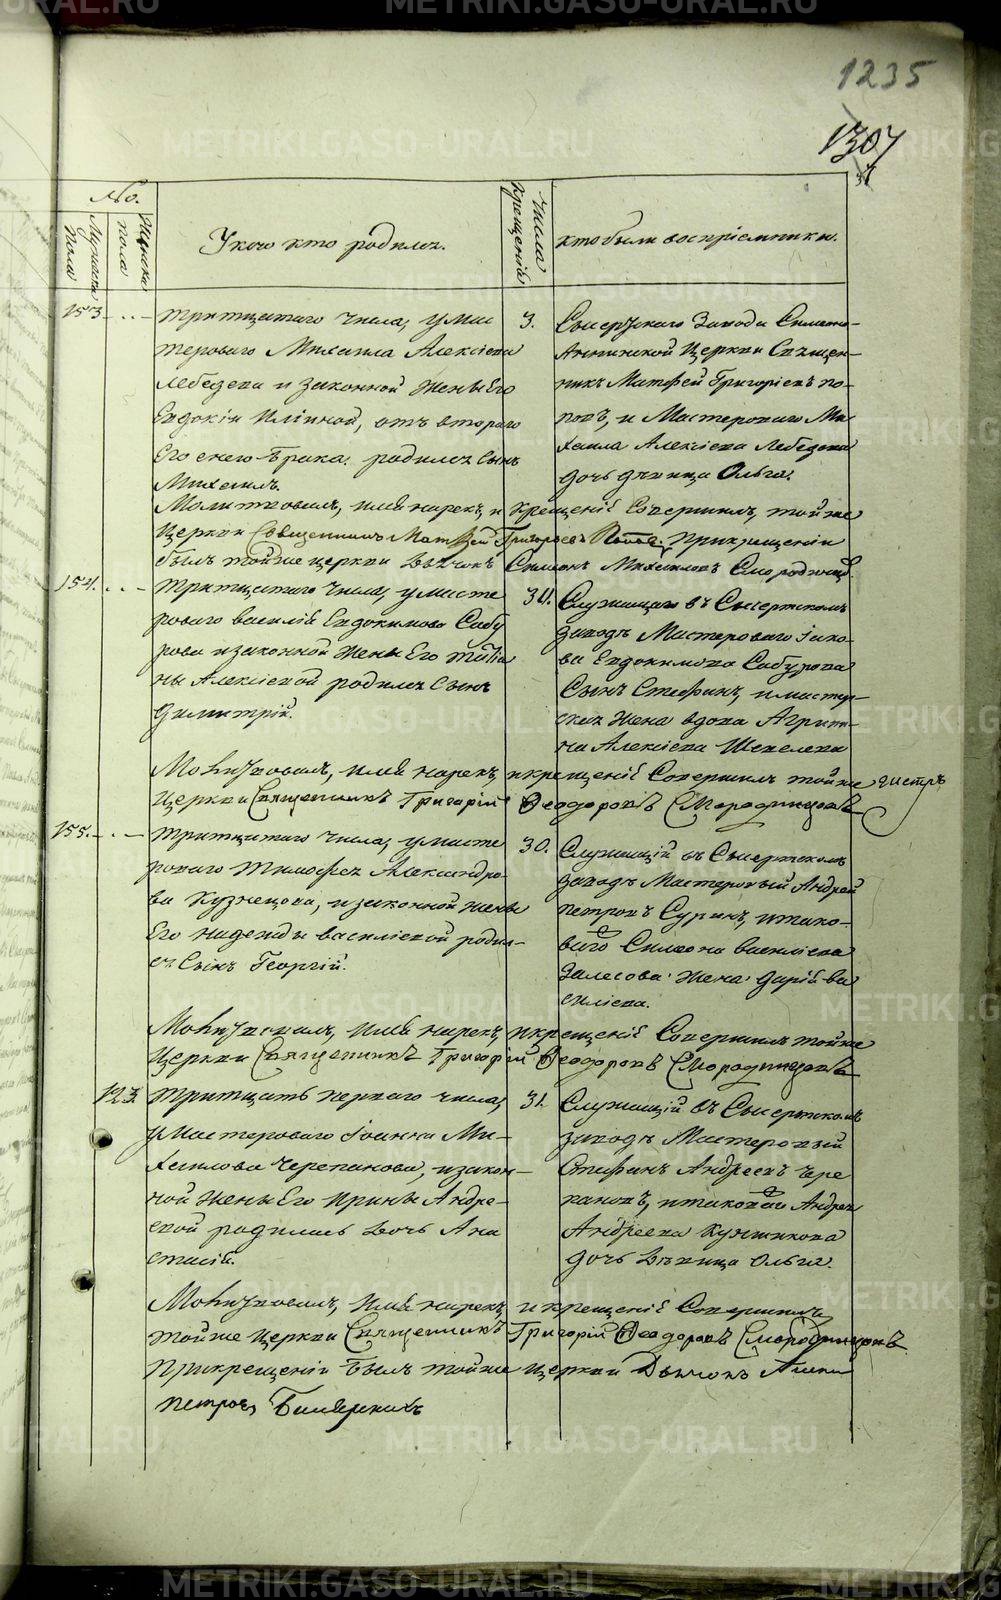 1235
1307
№.
Мужеска пола
Женска пола
У кого кто родился.
Числа крещенія
кто были воспріемники.
153 тритцатаго числа, у мас
тероваго Михаила Алексіева
Лебедева и законной жены Его
Евдокіи Иліиной, отъ втораго
Его брака. родился сынъ
Михаилъ.
3.
Сысертскаго Завода Симеоно-
Аннинской Церкви Священ-
никъ Матфей Григоріевъ По-
повъ, и Мастероваго Ми
хаила Алексіева Лебедева
дочь дѣвица Ольга.
Молитвовалъ, имя нарекъ, и крещеніе Совершилъ, той же
Церкви Священникъ Матвей Григорьевъ Попов. При крещеніи
былъ той же церкви Дьячокъ Симеонъ Михаиловъ Смородинцъ.
154. тритцатаго числа, у масте
роваго Василія Евдокимова Сабу
рова и законной жены Его Татіа
ны Алексіевой родился Сынъ
Димитрій.
30.
Служащаго въ Сысертскомъ
заводѣ Мастероваго Іако-
ва Евдокимова Сабурова
Сынъ Стефанъ, и мастер-
ская жена вдова Агрипи-
на Алексіева Шепелева
Молитвовалъ, имя нарекъ, и крещеніе Совершилъ той же
Церкви Священникъ Григорій Ѳеодоровъ Смородинцовъ
155. тритцатаго числа, у масте
роваго Тимофея Александро-
ва Кузнецова, и законной жены
Его Надежды Василіевой родил-
ся Сынъ Георгій.
30.
Служащій въ Сысертскомъ
заводѣ Мастеровый Андрей
Петровъ Суринъ, и тако-
ваго Симеона Василіева
Залесова жена Дарія Ва
силіева.
Молитвовалъ, имя нарекъ, и крещеніе Совершилъ той же
Церкви Священникъ Григорій Ѳеодоровъ Смородинцовъ
123. тритцать перваго числа,
у Мастероваго Іоанна Ми-
хаилова Черепанова, и закон-
ной жены Его Ирины Андре-
евой родилась дочь Ана
стасія.
31.
Служащій въ Сысертскомъ
заводѣ Мастеровый
Стефанъ Андреевъ Чере
пановъ, и таковаго Андрея
Андреева Кунщикова
дочь Дѣвица Ольга.
Молитвовалъ, имя нарекъ, и крещеніе Совершилъ
той же церкви Священникъ Григорій Ѳеодоровъ Смородинцовъ
При крещеніи былъ той же церкви Дьячокъ
Петровъ
METRIKI.GASO-URAL.RU